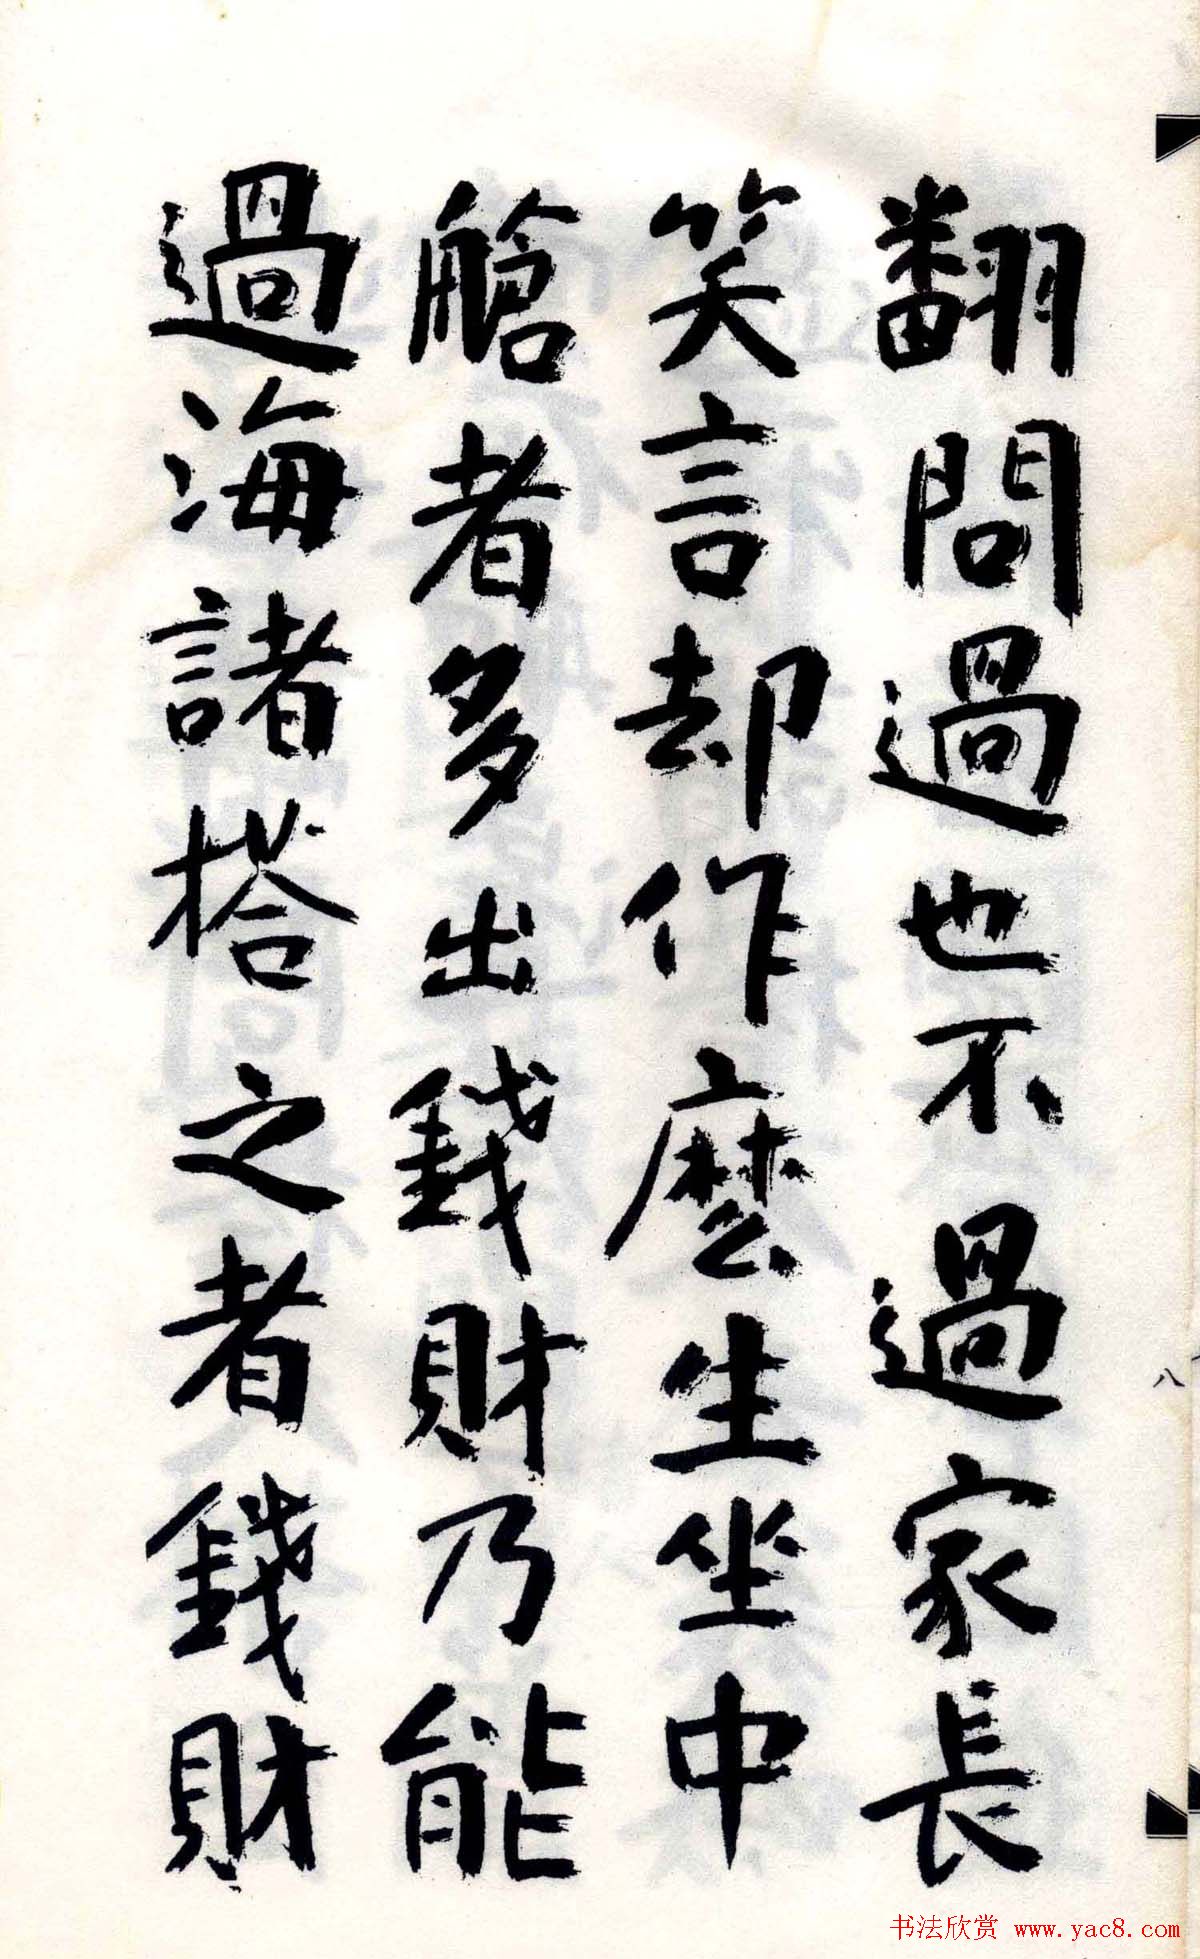 翻問過也不過家長
笑言却作麽生坐中
艙者多出錢財乃能
過海諸搭之者錢財
八
书法欣赏 www.yac8.com